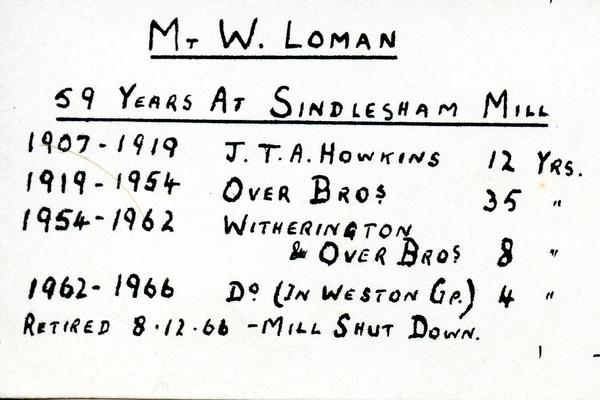 Mr W. LOMAN
59 YEARS AT SINDLESHAM MILL
1907-1919 J.T.A. HOWKINS 12 YRS.
1919-1954 OVER BROS 35 "
1954-1962 WITHERINGTON
& OVER BROS 8 "
1962-1966 Do (IN WESTON GP.) 4 "
RETIRED 8.12.66 - MILL SHUT DOWN.